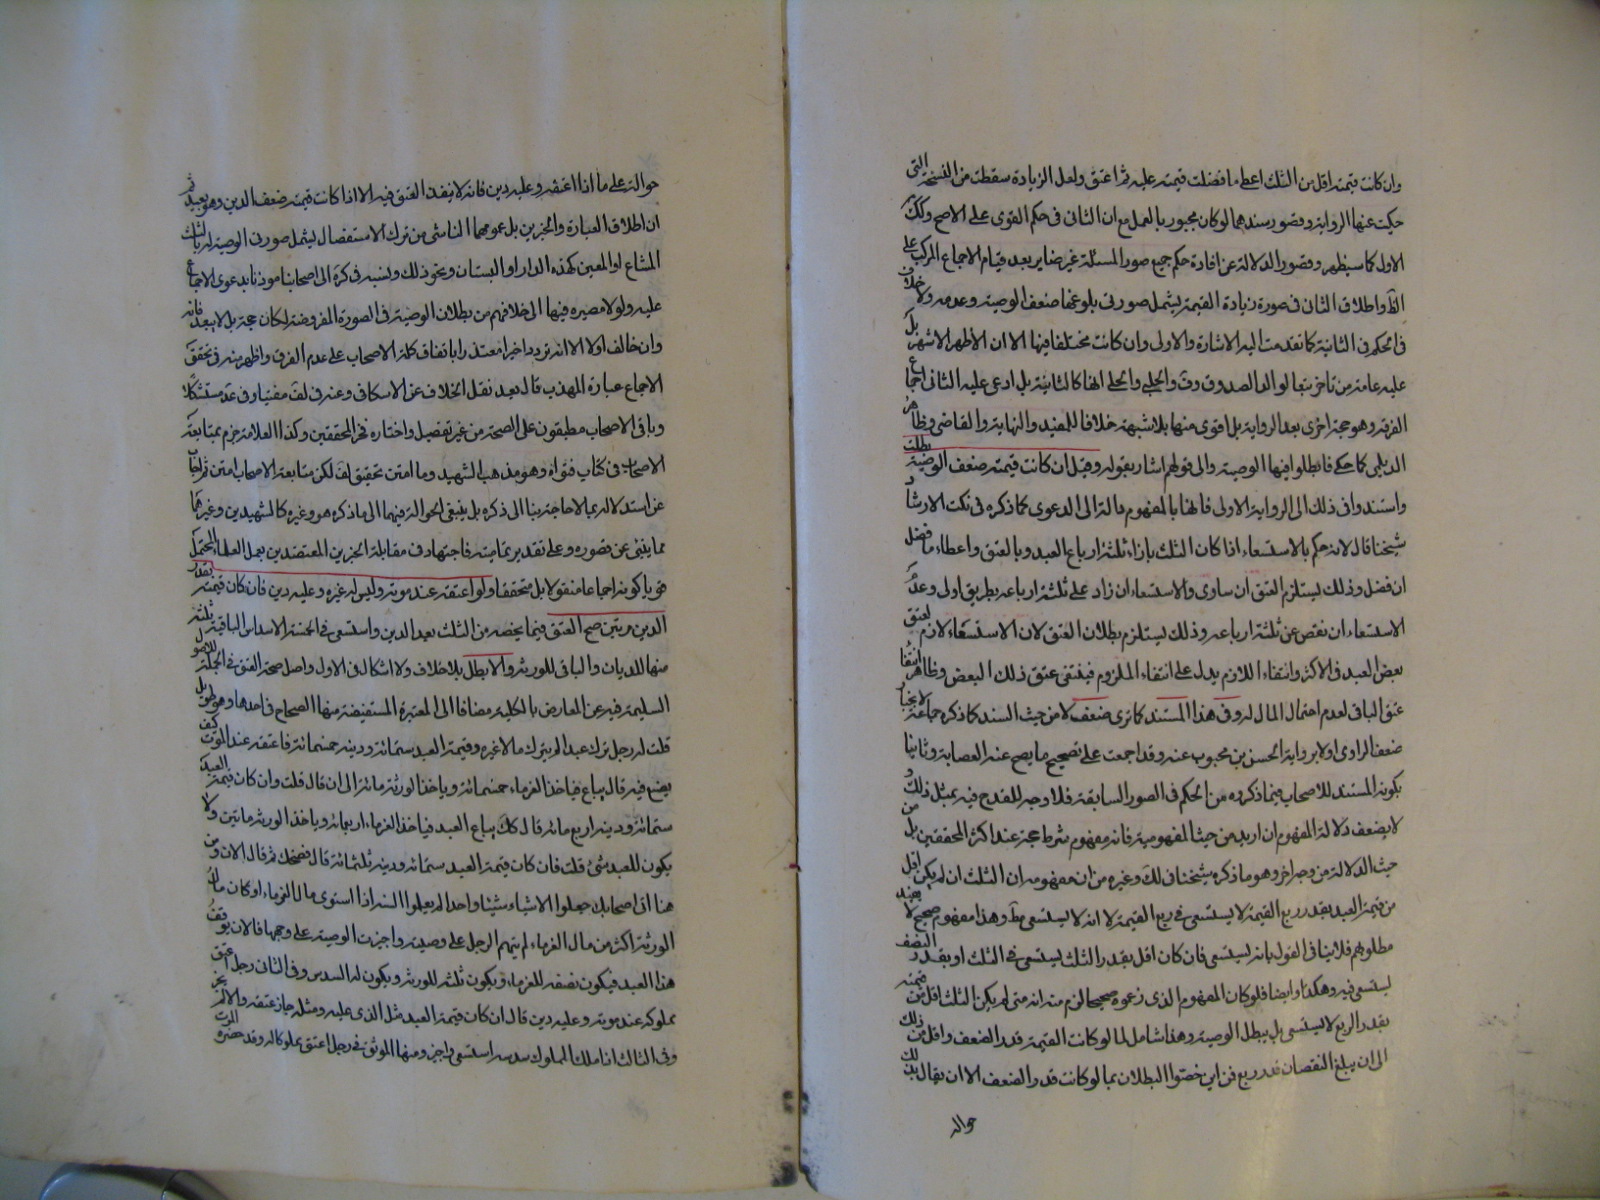 وان كانت قيمته اقل من الثلث اعطى ما فضلت قيمته عليه ثم اعتق ولعل الزيادة سقطت من النسخة التى
حكيت عنها الرواية وقصور سندهما لو كان مجبور بالعمل مع ان الثانى فى حكم القوى على الاصح وكك
الاول كما سيظهر وقصور الدلالة عن افادة حكم جميع صور المسئلة غير ضاير بعد قيام الاجماع المركب على
الظ واطلاق الثانى فى صورة زيادة القيمة ليشمل صورتى بلوغها ضعف الوصية وعدمه ولا خلاف
فى الحكم فى الثانية كما تقدمت اليه الاشارة والاولى وان كانت مختلفا فيها الا ان الأظهر الاشهر بل
عليه عامة من تاخر تبعا لوالد الصدوق وف والحلبي والحلي انها كالثانية بل ادعى عليه الثانى اجماع
الفرقة وهو حجة اخرى بعد الرواية بل اقوى منها بلا شبهة خلافا للمفيد والنهاية والقاضى وظاهر
الديلمى كما حكى فابطلوا فيها الوصية والى قولهم اشار بقوله وقيل ان كانت قيمته ضعف الوصية بطلت
واستندوا فى ذلك الى الرواية الاولى فانها بالمفهوم دالة الى الدعوى كما ذكره فى نكت الارشاد
شيخنا قال لانه حكم بالاستسعاء اذا كان الثلث بازاء ثلثة ارباع العبد وبالعتق واعطاء ما فضل
ان فضل وذلك يستلزم العتق ان ساوى والاستسعاء ان زاد على ثلثة ارباعه بطريق اولى وعدم
الاستسعاء ان نقص عن ثلثة ارباعه وذلك يستلزم بطلان العتق لان الاستسعاء لازم لعتق
بعض العبد فى الاكثر وانتفاء اللازم يدل على انتفاء الملزوم فينتفى عتق ذلك البعض وظاهر انتفاء
عتق الباقى لعدم احتمال المال له وفى هذا المستند كما ترى ضعف لا من حيث السند كما ذكره جماعة لانجبار
ضعف الراوى اولا برواية الحسن بن محبوب عنه وقد اجمعت على تصحيح ما يصح عنه العصابة وثانيا
بكونه المستند للاصحاب فيما ذكروه من الحكم فى الصور السابقة فلا وجه للقدح فيه بمثل ذلك و
لا بضعف دلالة المفهوم ان اريد من حيث المفهومية فانه مفهوم شرط حجة عند اكثر المحققين بل من
حيث الدلالة من وجه اخر وهو ما ذكره شيخنا فى لك وغيره من ان مفهومه ان الثلث ان لم يكن اقل
من قيمة العبد بقدر ربع القيمة لا يستسعى فى ربع القيمة لا انه لا يستسعى مط وهذا مفهوم صحيح لا يفيد
مطلوبهم فلا ينافى القول بانه يستسعى فان كان اقل بقدر الثلث يستسعى فى الثلث او بقدر النصف
يستسعى فيه وهكذا وايضا فلو كان المفهوم الذى زعموه صحيحا لزم منه انه متى لم يكن الثلث اقل من قيمته
بقدر الربع لا يستسعى بل يبطل الوصية وهذا شامل لما لو كانت القيمة قدر الضعف واقل من ذلك
الى ان يبلغ النقصان قدر ربع فمن اين خصوا البطلان بما لو كانت قدر الضعف الا ان يقال بان ذلك
حواله
حوالة على ما اذا اعتقه وعليه دين فانه لا ينفذ العتق فيه الا اذا كانت قيمته ضعف الدين وهو بعيد ثم
ان اطلاق العبارة والخبرين بل عمومهما الناشى من ترك الاستفصال ليشمل صورتى الوصية له بالثلث
المشاع او المعين كهذه الدار او البستان ونحو ذلك ونسبه فى كرة الى اصحابنا موذنا بدعوى الاجماع
عليه ولولا مصيره فيها الى خلافهم من بطلان الوصية فى الصورة المفروضة لكان حجة بل لا يبعد فانه
وان خالف اولا الا انه تردد اخيرا معتذرا باتفاق كلمة الاصحاب على عدم الفرق واظهر منه فى تحقق
الاجماع عبارة المهذب قال بعد نقل الخلاف عن الاسكافى وعنه فى لف مفتيا وفى عد مستشكلا
وباقى الاصحاب مطبقون على الصحة من غير تفصيل واختاره فخر المحققين وكذا العلامة جزم بمتابعة
الاصحاب فى كتاب فتواه وهو مذهب الشهيد وما امتن تحقيق لف لكن متابعة الاصحاب امتن ثم اجاب
عن استدلاله بما لا حاجة بنا الى ذكره بل ينبغى الحوالة فيهما الى ما ذكره هو وغيره كالشهيدين وغيرهما
مما ينبئ عن قصوره وعلى تقدير تماميته فاجتهاد فى مقابلة الخبرين المعتضدين بعمل العلماء المحتمل
قويا كونه اجماعا منقولا بل محققا ولو اعتقه عند موته وليس له غيره وعليه دين فان كان قيمته بقدر
الدين مرتين صح العتق فيما يخصه من الثلث بعد الدين واستسعى فى الخمسة الاسداس الباقية ثلثة
منها للديان والباقى للورثة والا بطل بلا خلاف ولا اشكال فى الاول واصل صحة العتق فى الجملة للاصول
السليمة فيه عن المعارض بالكلية مضافا الى المعتبرة المستفيضة منها الصحاح فى احدها وهو طويل
قلت له رجل ترك عبدا لم يترك مالا غيره وقيمة العبد ستمائة ودينه خمسمائة فاعتقه عند الموت كيف
يصنع فيه قال يباع فياخذ الغرماء خمسمائة وياخذ الورثة مائة الى ان قال قلت وان كان قيمة العبد
ستمائة ودينه اربعمائة قال كك يباع العبد فياخذ الغرماء اربعمائة وياخذ الورثة مائتين ولا
يكون للعبد شئ قلت فان كان قيمة العبد ستمائة ودينه ثلثمائة قال فضحك ثم قال الان ومن
هنا اتى اصحابك جعلوا الاشياء شيئا واحدا لم يعلوا السنة اذا استوى مال الغرماء او كان مال
الورثة اكثر من مال الغرماء لم يتهم الرجل على وصيته واجيزت الوصية على وجهها فالان يوقف
هذا العبد فيكون نصفه للغرماء ويكون ثلثه للورثة ويكون له السدس وفى الثانى رجل اعتق
مملوكه عند موته وعليه دين قال ان كان قيمة العبد مثل الذى عليه ومثله جاز عتقه والا لم يجز
وفى الثالث اذا ملك المملوك سدسه استسعى واجيز ومنها الموثق فى رجل اعتق مملوكا له وقد حضره الموت